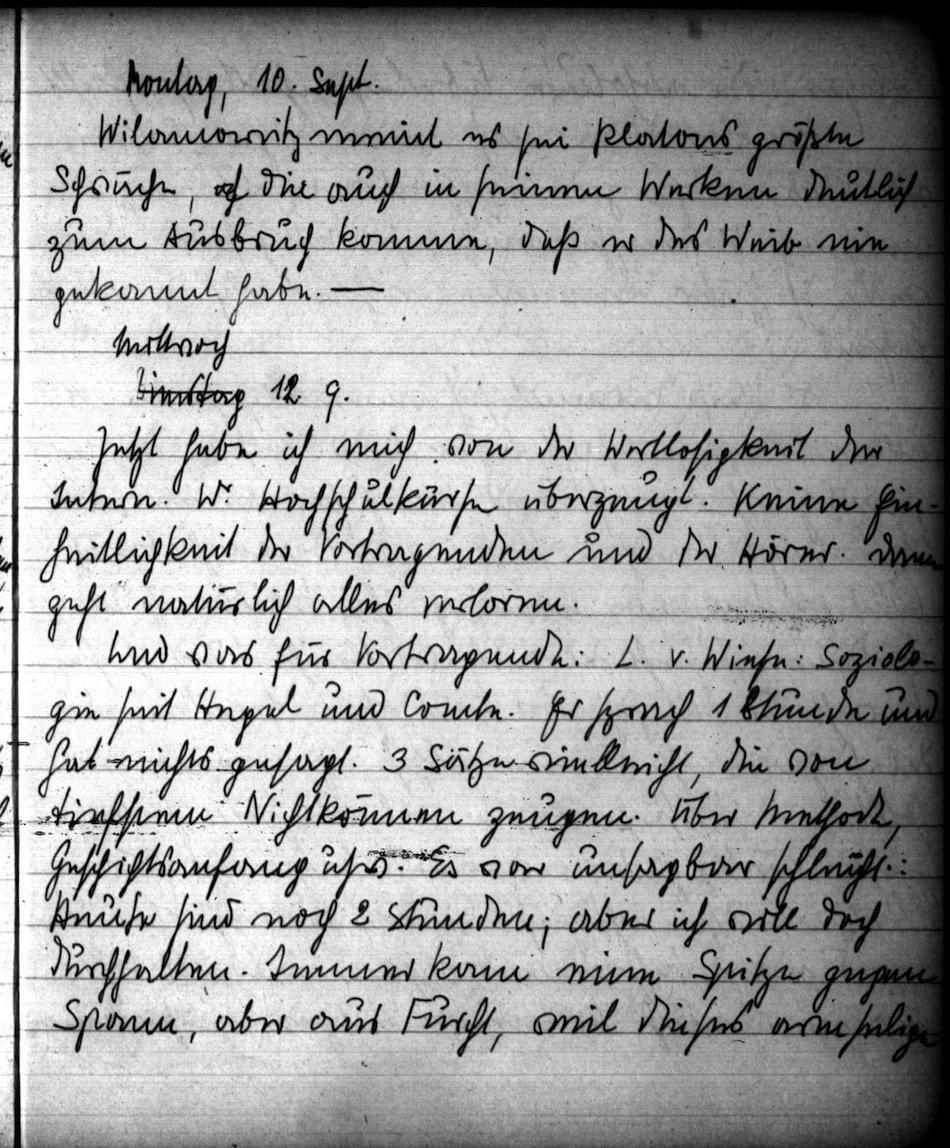 Montag, 10. Sept.
Wilamowitz meint es sei Platons größte
Schwäche, die auch in seinen Werken deutlich
zum Ausbruch komme, daß er das Weib nie
gekannt habe. —
Mittwoch
Dienstag 12 9.
Jetzt habe ich mich von der Wertlosigkeit der
Intern. W. Hochschulkurse überzeugt. Keine Ein-
heitlichkeit der Vortragenden und der Hörer. Dann
geht natürlich alles verloren.
Und was für Vortragende: L. v. Wiese: Soziolo-
gie seit Hegel und Comte. Er sprach 1 Stunde und
hat nichts gesagt. 3 Sätze vielleicht, die von
tiefstem Nichtkönnen zeugen. Über Methode,
Geschichtsanfang usw. Es war unsagbar schlecht.:
Heute sind noch 2 Stunden; aber ich will doch
durchhalten. Immer kam eine Spitze gegen
Spann, aber aus Furcht, weil dieses armselige